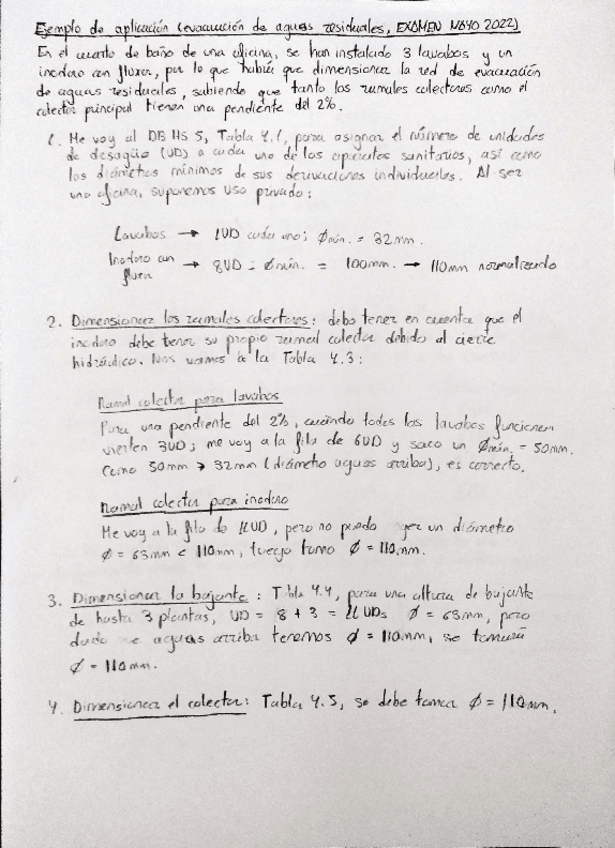 Ejemplo de aplicación (evacuación de aguas residuales, EXAMEN MAYO 2022)
En el cuarto de baño de una oficina, se han instalado 3 lavabos y un
inodoro con fluxor, por lo que habrá que dimensionar la red de evacuación
de aguas residuales, sabiendo que tanto los ramales colectores como el
colector principal tienen una pendiente del 2%.
1. Me voy al DB HS 5, Tabla 4.1, para asignar el número de unidades
de desagüe (UD) a cada uno de los aparatos sanitarios, así como
los diámetros mínimos de sus derivaciones individuales. Al ser
una oficina, suponemos uso privado:
Lavabos → 1UD cada uno; Ømin. = 32mm.
Inodoro con fluxor → 8UD; Ømin. = 100mm. → 110mm normalizado
2. Dimensionar los ramales colectores: debo tener en cuenta que el
inodoro debe tener su propio ramal colector debido al cierre
hidráulico. Nos vamos a la Tabla 4.3:
Ramal colector para lavabos
Para una pendiente del 2%, cuando todos los lavabos funcionen
vierten 3UD; me voy a la fila de 6UD y saco un Ømin. = 50mm.
Como 50mm > 32mm (diámetro aguas arriba), es correcto.
Ramal colector para inodoro
Me voy a la fila de 11UD, pero no puedo un diámetro
Ø = 63mm < 110mm, luego tomo Ø = 110mm.
3. Dimensionar la bajante: Tabla 4.4, para una altura de bajante
de hasta 3 plantas, UD = 8 + 3 = 11 UDs Ø = 63mm, pero
dado aguas arriba tenemos Ø = 110mm, se tomará
Ø = 110mm.
4. Dimensionar el colector: Tabla 4.5, se debe tomar Ø = 110mm.